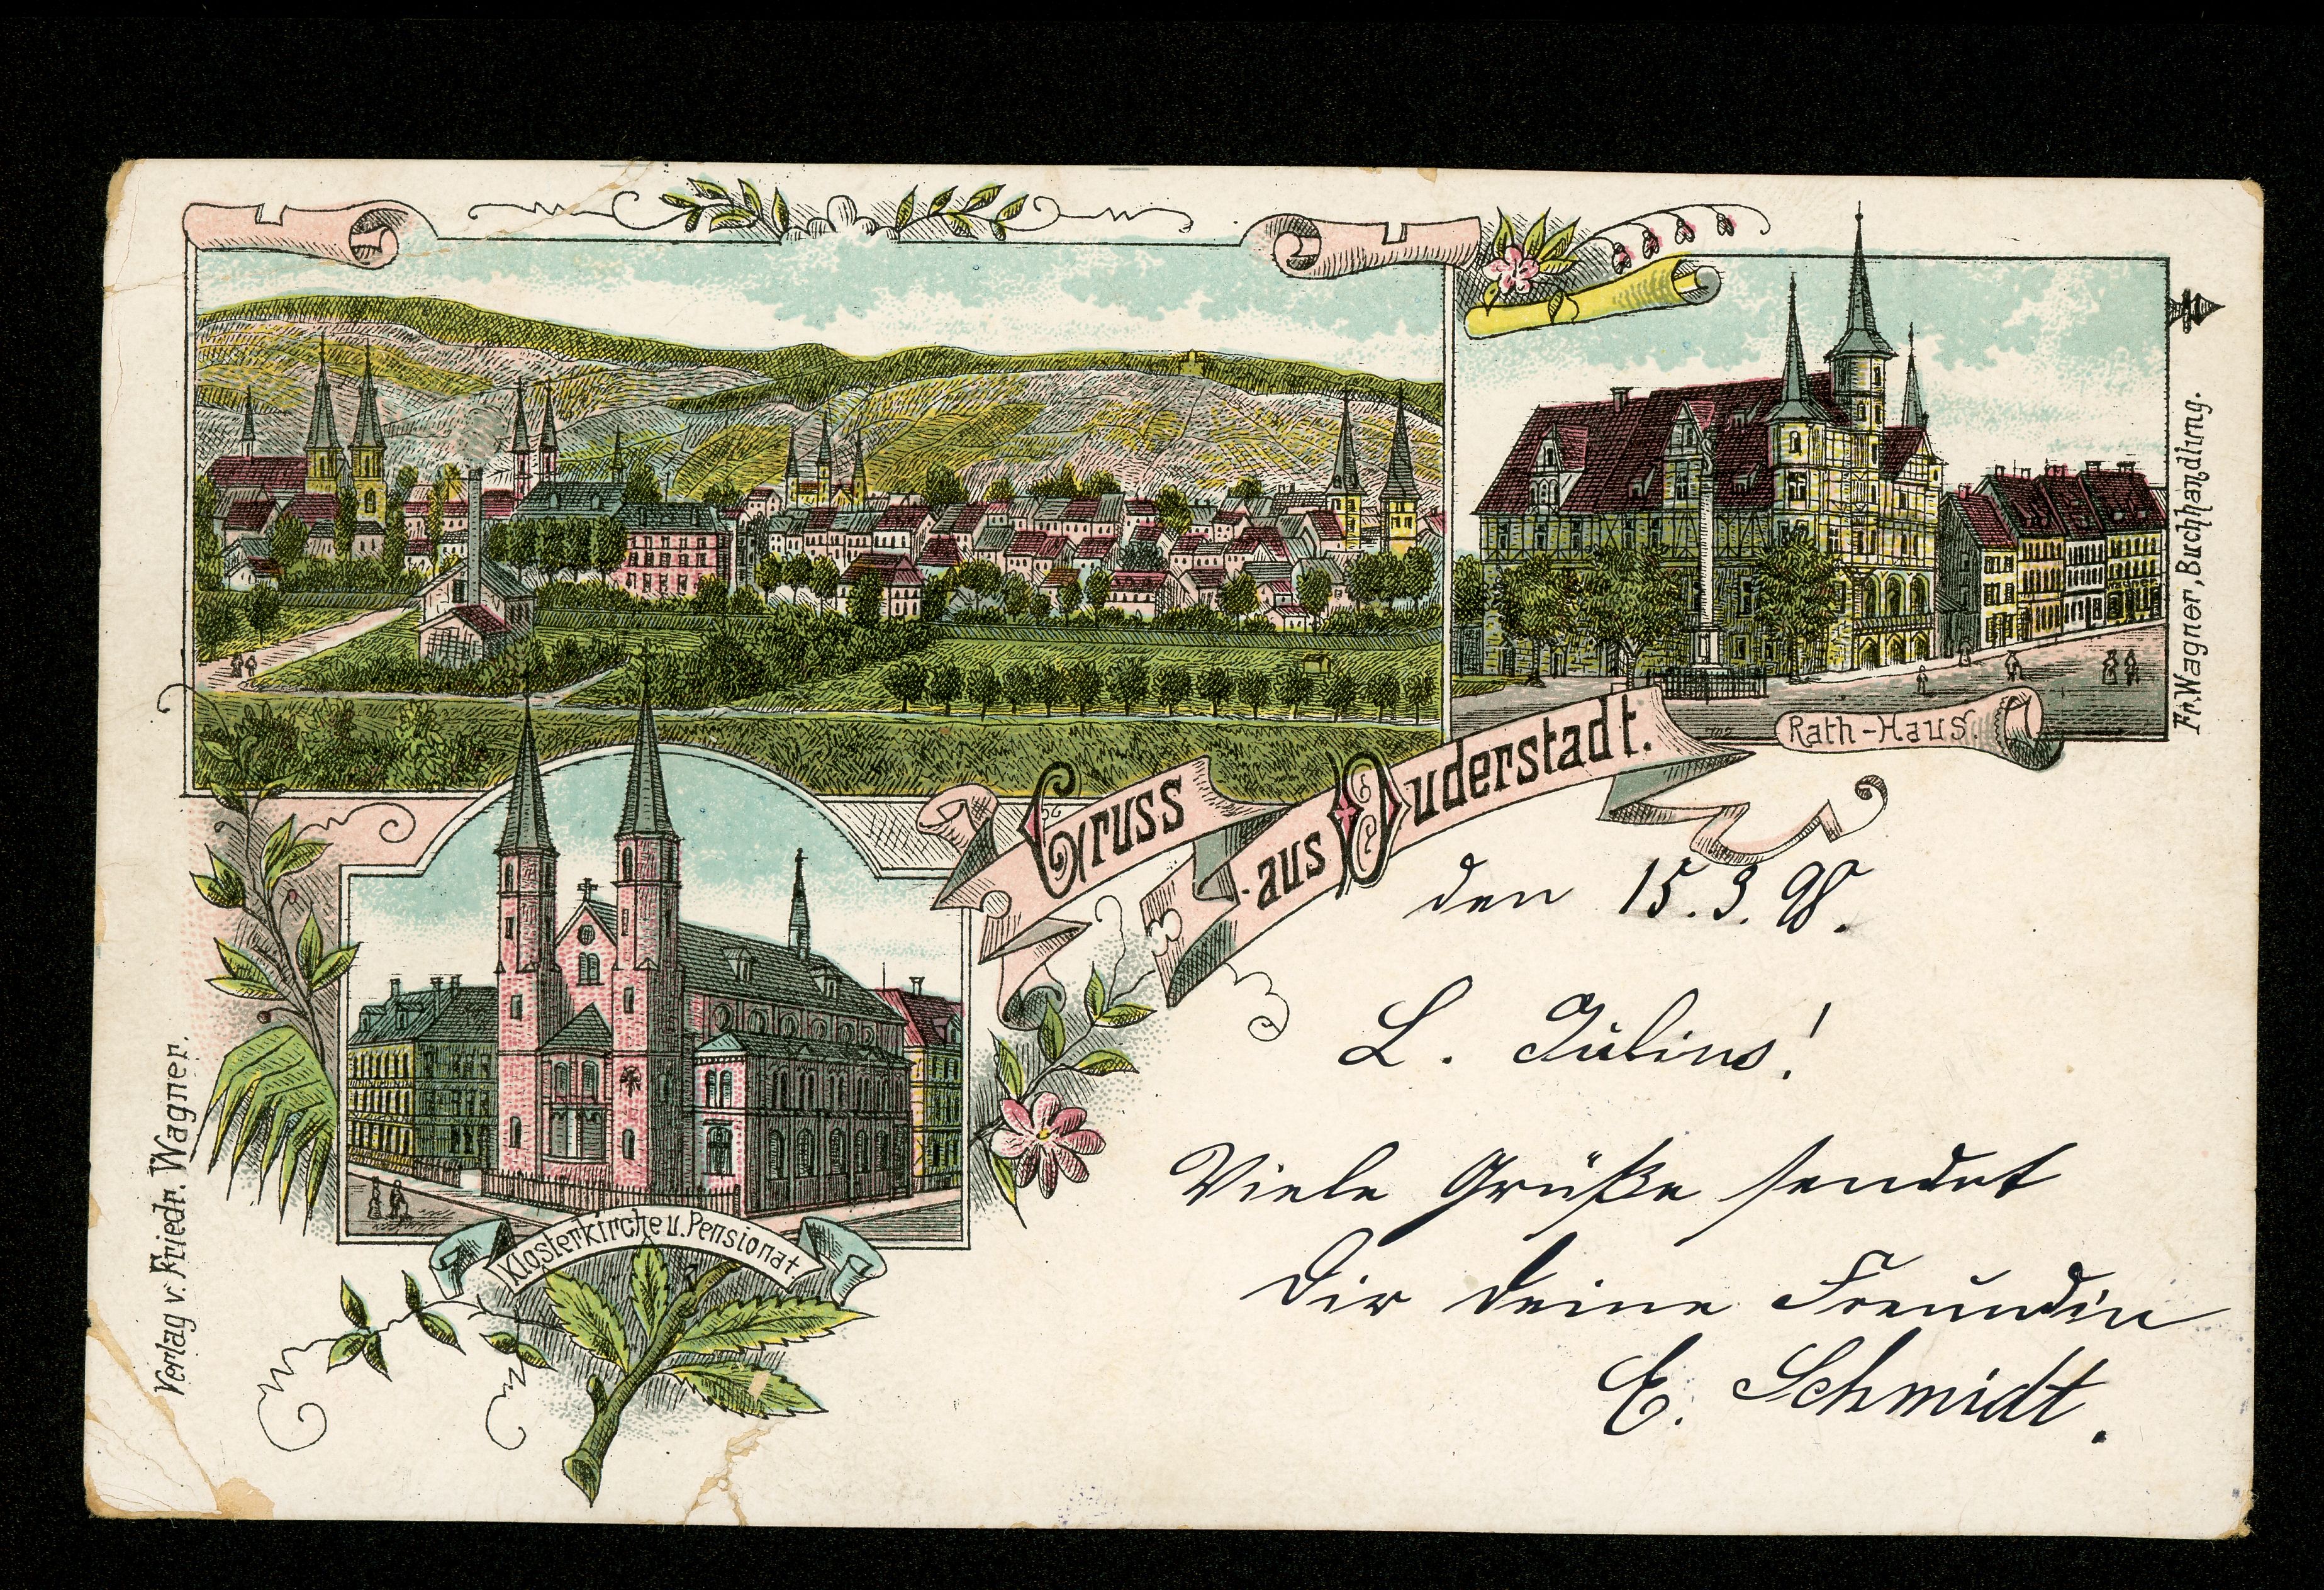 Gruss aus Duderstadt.
Rath-Haus.
Fr. Wagner, Buchhandlung.
Klosterkirche u. Pensionat.
Verlag v. Friedr. Wagner.
den 15. 3. 98.
L. Julius!
Viele Grüße sendet
Dir deine Freundin
E. Schmidt.